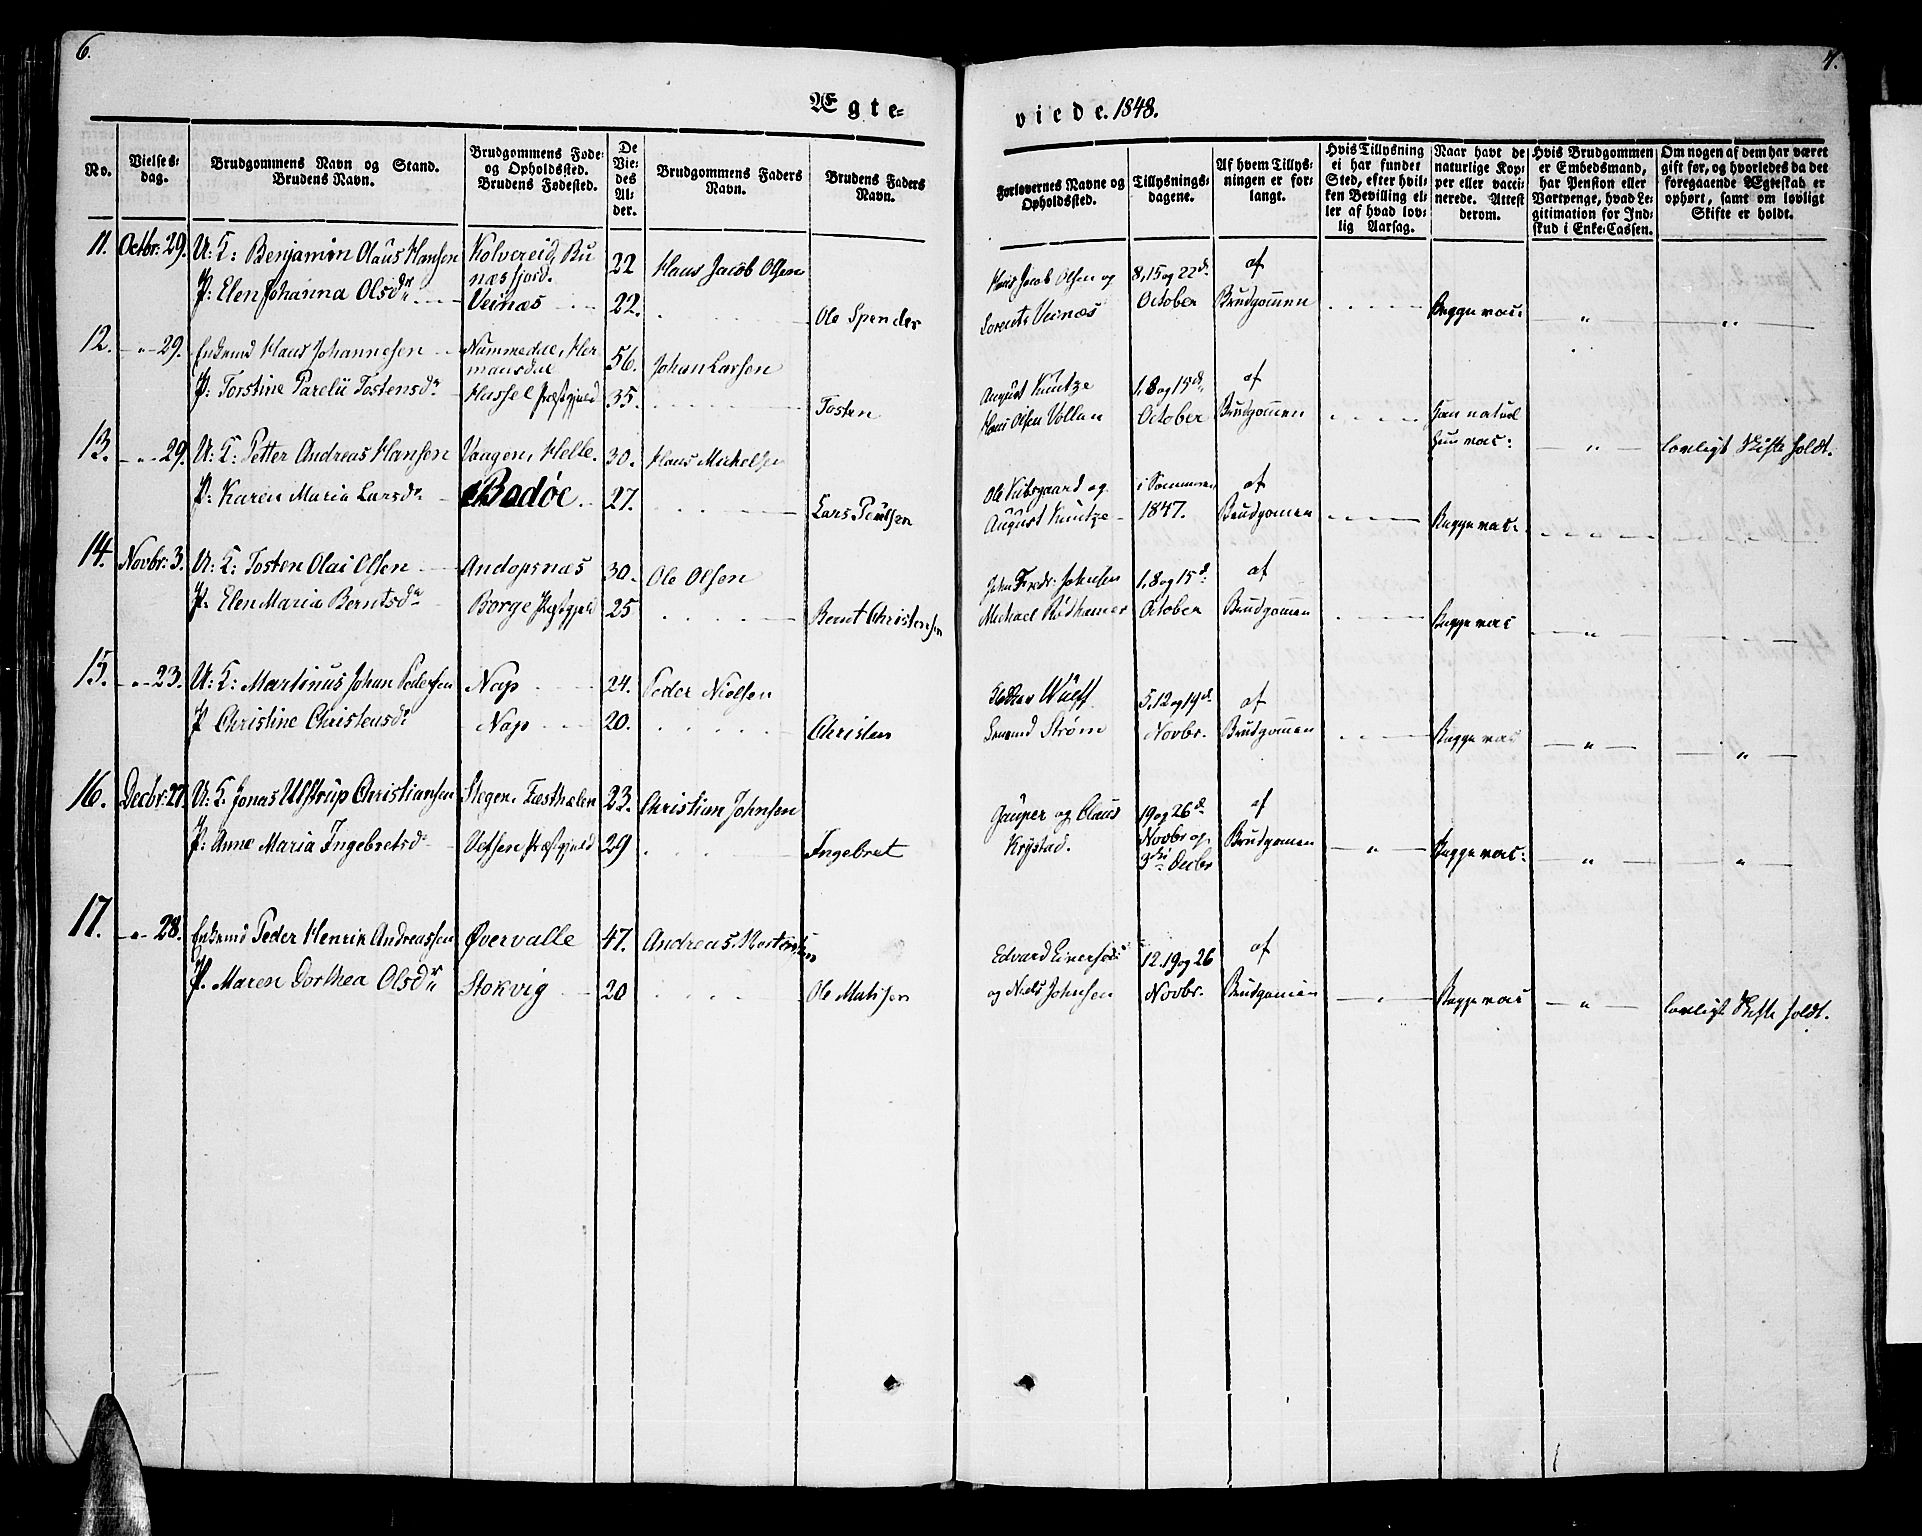 6.
7.
Ægte=
viede. 1848.
No.
Vielses-
dag.
Brudgommens Navn og Stand.
Brudens Navn.
Brudgommens Føde-
og Opholdssted.
Brudens Fødested.
De
Vie-
des
Al-
der.
Brudgommens Faders
Navn.
Brudens Faders
Navn.
Forlovernes Navne og
Opholdssted.
Tillysnings-
dagene.
Af hvem Tillys-
ningen er for-
langt.
Hvis Tillysning
ei har fundet
Sted, efter hvil-
ken Bevilling el-
ler af hvad lov-
lig Aarsag.
Naar havt de
naturlige Kop-
per eller vacci-
nerede. Attest
derom.
Hvis Brudgommen
er Embedsmand,
har Pension eller
Vartpenge, hvad Le-
gitimation for Ind-
skud i Enke-Cassen.
Om nogen af dem har været
gift før, og hvorledes da det
foregaaende Ægteskab er
ophørt, samt om lovligt
Skifte er holdt.
11. Octbr: 29. U: K: Benjamin Olaus Hansen Kolvereid, 22 Hans Jacob Olsen Hans Jacob Olsen og 8, 15 og 22d af
P: Elen Johanna Olsdr Veinæs 22. Ole Spender Lorents Veinæs October Brudgommen Begge vac: "
12. " 29. Enkemd Hans Johannesen Nummedal, Her-
mansdal 56. Johan Larsen August Kuntze 1, 8 og 15d af
P: Torstine Parelii Tostensdr Hassel Præstgjeld 35. Tosten Hans Olsen Vollan October Brudgommen han natul
hun vac: " lovligt Skifte holdt.
13. " 29. U: K: Petter Andreas Hansen Vaagen, Helle. 30. Hans Mickelsen Ole og i Sommeren af
P: Karen Maria Larsdr Bodøe 27. Lars August Kuntze 1847. Brudgommen Begge vac: "
14. Novbr: 3. U: K: Tosten Olai Olsen Andopsnæs 30. Ole Olsen John Fredr: Johnsen 1, 8 og 15d: af
P. Elen Maria Berntsdr Borge Præstgjeld 25 Bernt Christensen Michael Rødhamer October Brudgommen Begge vac "
15. " 23. U: K: Martinus Johan Pedersen Nap 24. Peder Nielsen Wulff 5, 12 og 19d. af
P Christine Christensdr Nap 20. Christen Strøm Novbr. Brudgommen Begge vac "
16. Decbr: 27. U: K. Jonas Ulstrup Christiansen Stegen, 23. Christian Johnsen Jesper og Claus 19 og 26d af
P: Anne Maria Ingebretsdr Præstgjeld 29 Ingebret Krystad. Novbr og
3die Decbr Brudgommen " Begge vac: "
17. " 28. Enkemd Peder Henrik Andreassen Øvervalle 47. Andreas Edvard 12. 19 og 26 af
P. Maren Dorthea Olsdr Stokvig 20 Ole Matisen og Niels Johnsen Novbr. Brudgommen " Begge vac " lovligt Skifte holdt.